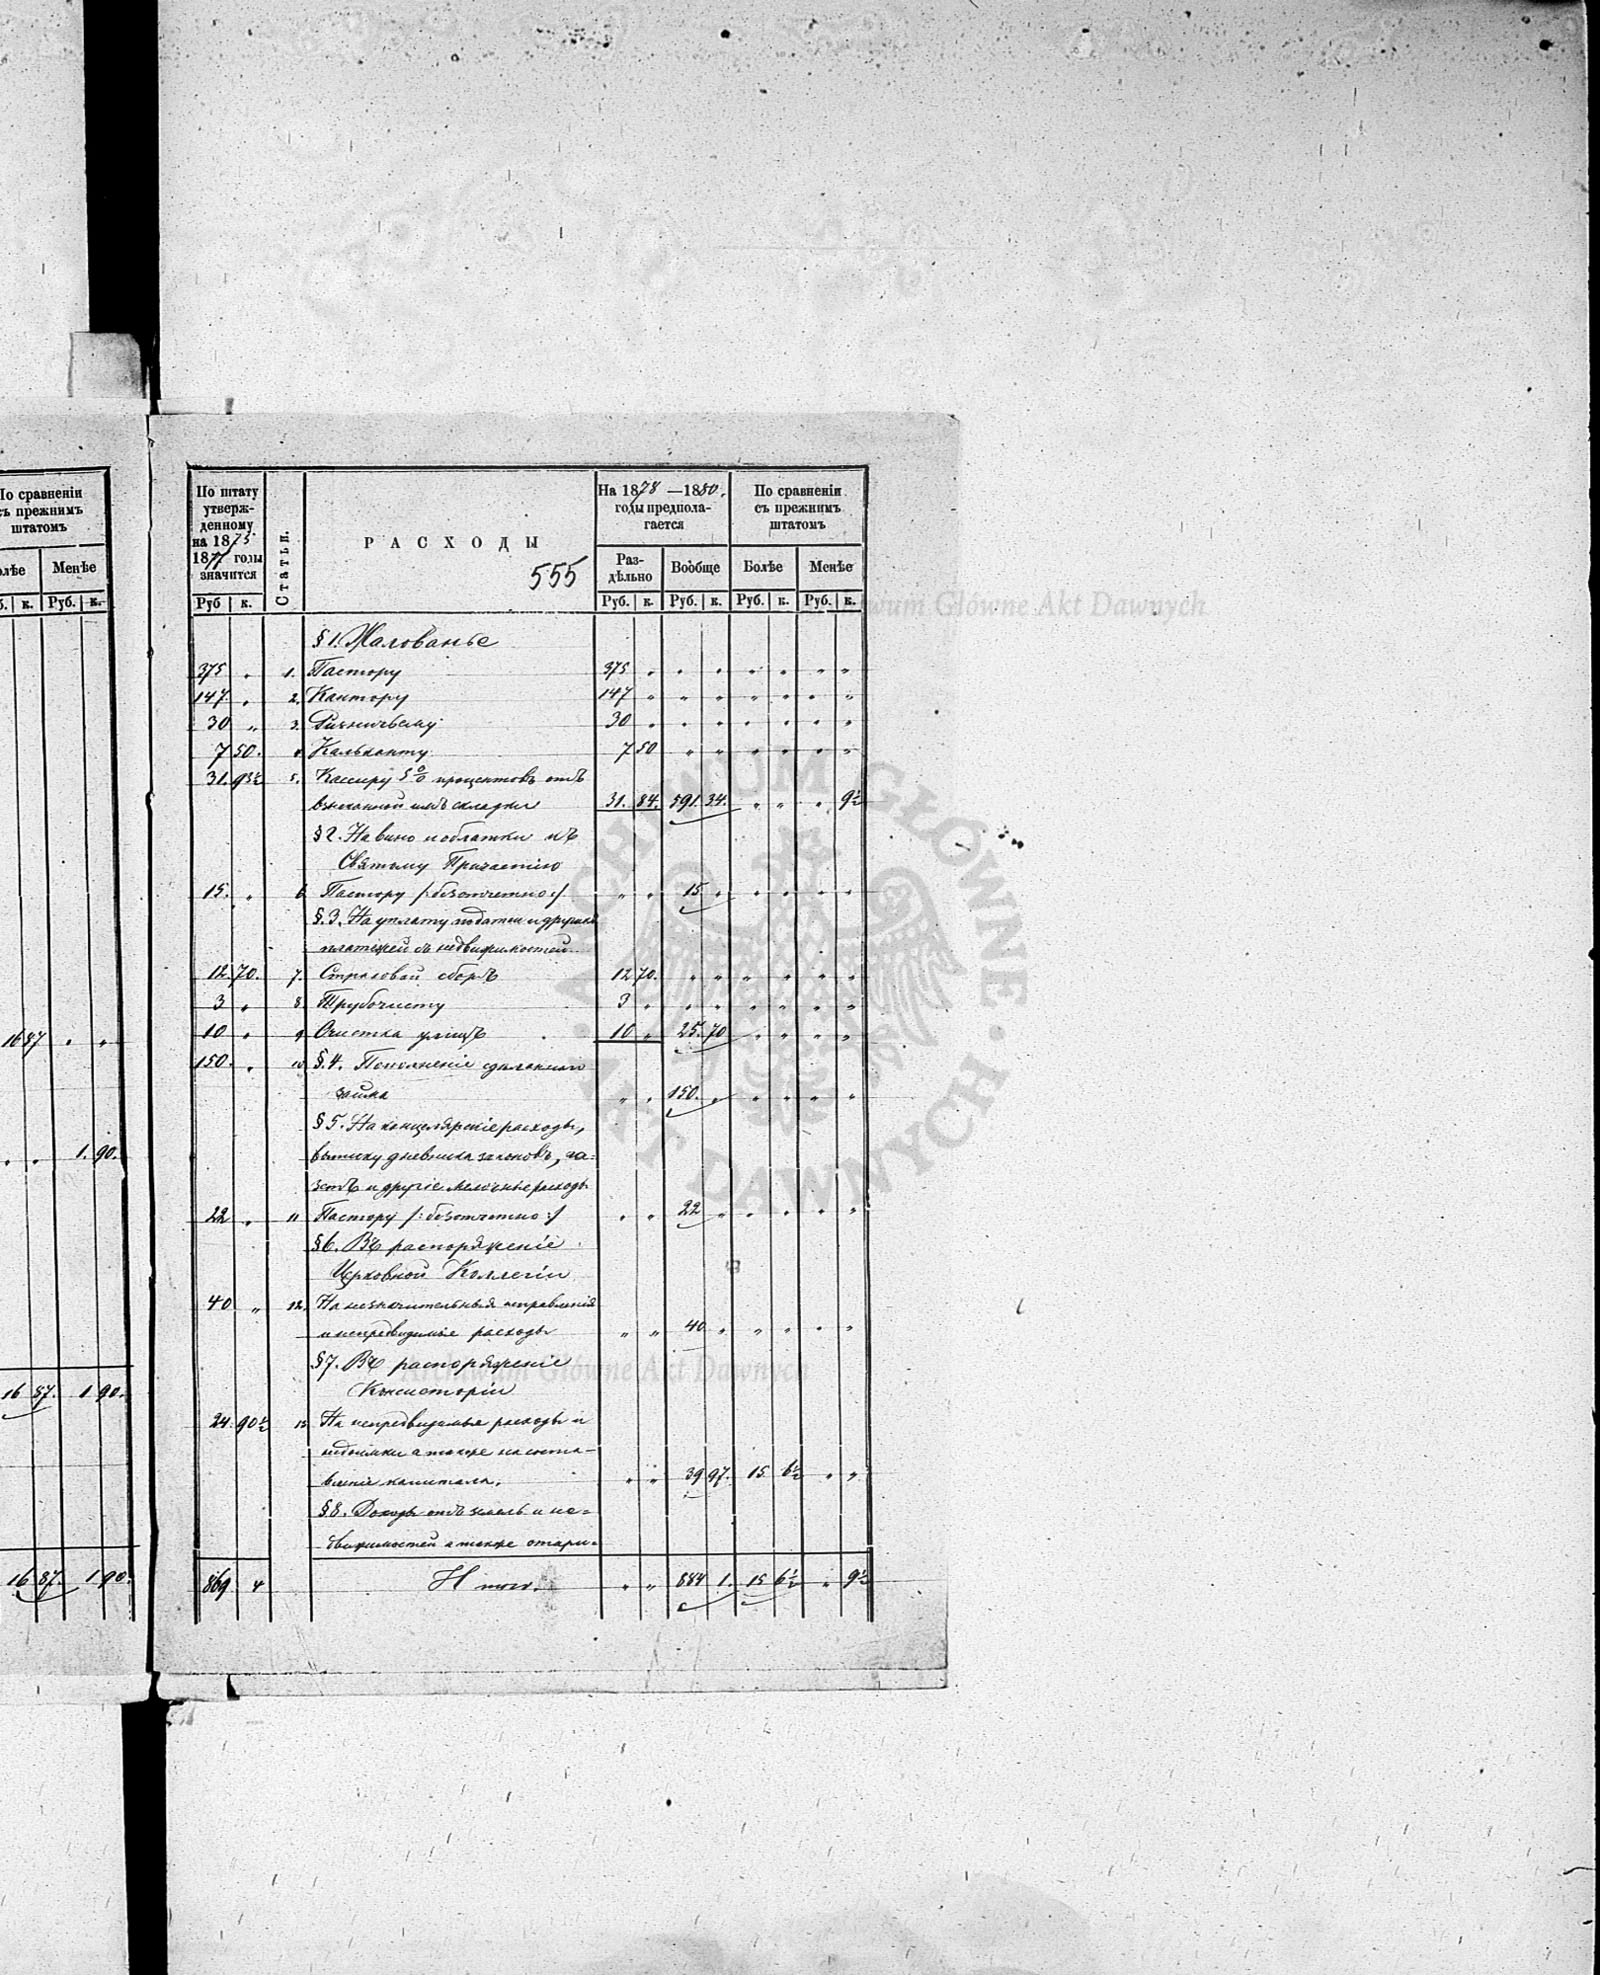 По сравненіи
съ прежнимъ
штатомъ
Менѣе
к. Руб. к.
16 87 " "
" " 1. 90.
16 87. 1 90.
16 87. 1 90.
По штату утвержденному на 1875. 1877 годы значится
Руб к.
Статьи.
РАСХОДЫ
555
На 1878 —1880.
годы предпола-
гается
Раз-
дѣльно
Вообще
Руб. к. Руб. к.
По сравненіи
съ прежнимъ
штатомъ
Болѣе Менѣе
Руб. к. Руб. к.
Archiwum Główne Akt Dawnych
§ 1. Жалованье
375 " 1. Пастору 375 " " " " " " "
147. " 2. Кантору 147 " " " " " " "
30 " 3. 30 " " " " " " "
7 50. Кальканту 7 50 " " " " " "
31. 93½ 5. Кассиру 5 % процентовъ отъ
взысканной имъ складки 31. 84. 591. 34. " " " 9½
§ 2. На вино и облатки къ
Святому Причастію
15. " 6. Пастору /:безотчетно:/ " " 15. " " " " "
§. 3. На уплату податей и другихъ
платежей съ недвижимостей
12. 70. 7. Страховой сборъ 12 70. " " " " " "
3 " 8. Трубочисту 3 " " " " " " "
10 " 9. Очистка улицъ 10 " 25. 70 " " " "
150. " 10 §. 4. Пополненіе сдѣланнаго
займа " " 150. " " " " "
§ 5. На канцелярскіе расходы,
выписку дневника законовъ, га-
зетъ и другіе мелочные расходы
22 " 11 Пастору /:безотчетно:/ " " 22 " " " " "
§ 6. Въ распоряженіе
Церковной Коллегіи
40 " 12. На незначительныя исправленія
и непредвидимые расходы " " 40 " " " " "
§ 7. Въ распоряженіе
Консисторіи
Archiwum Główne Akt Dawnych
24. 90½ 13 На непредвидимые расходы и
недоимки а также на соста-
вленіе капитала. " " 39 97. 15 6½ " "
§ 8. Доходы отъ земель и не-
движимостей а также
869 4 Итого. " " 884 1. 15 6½ " 9½
ARCHIWUM GŁÓWNE AKT DAWNYCH